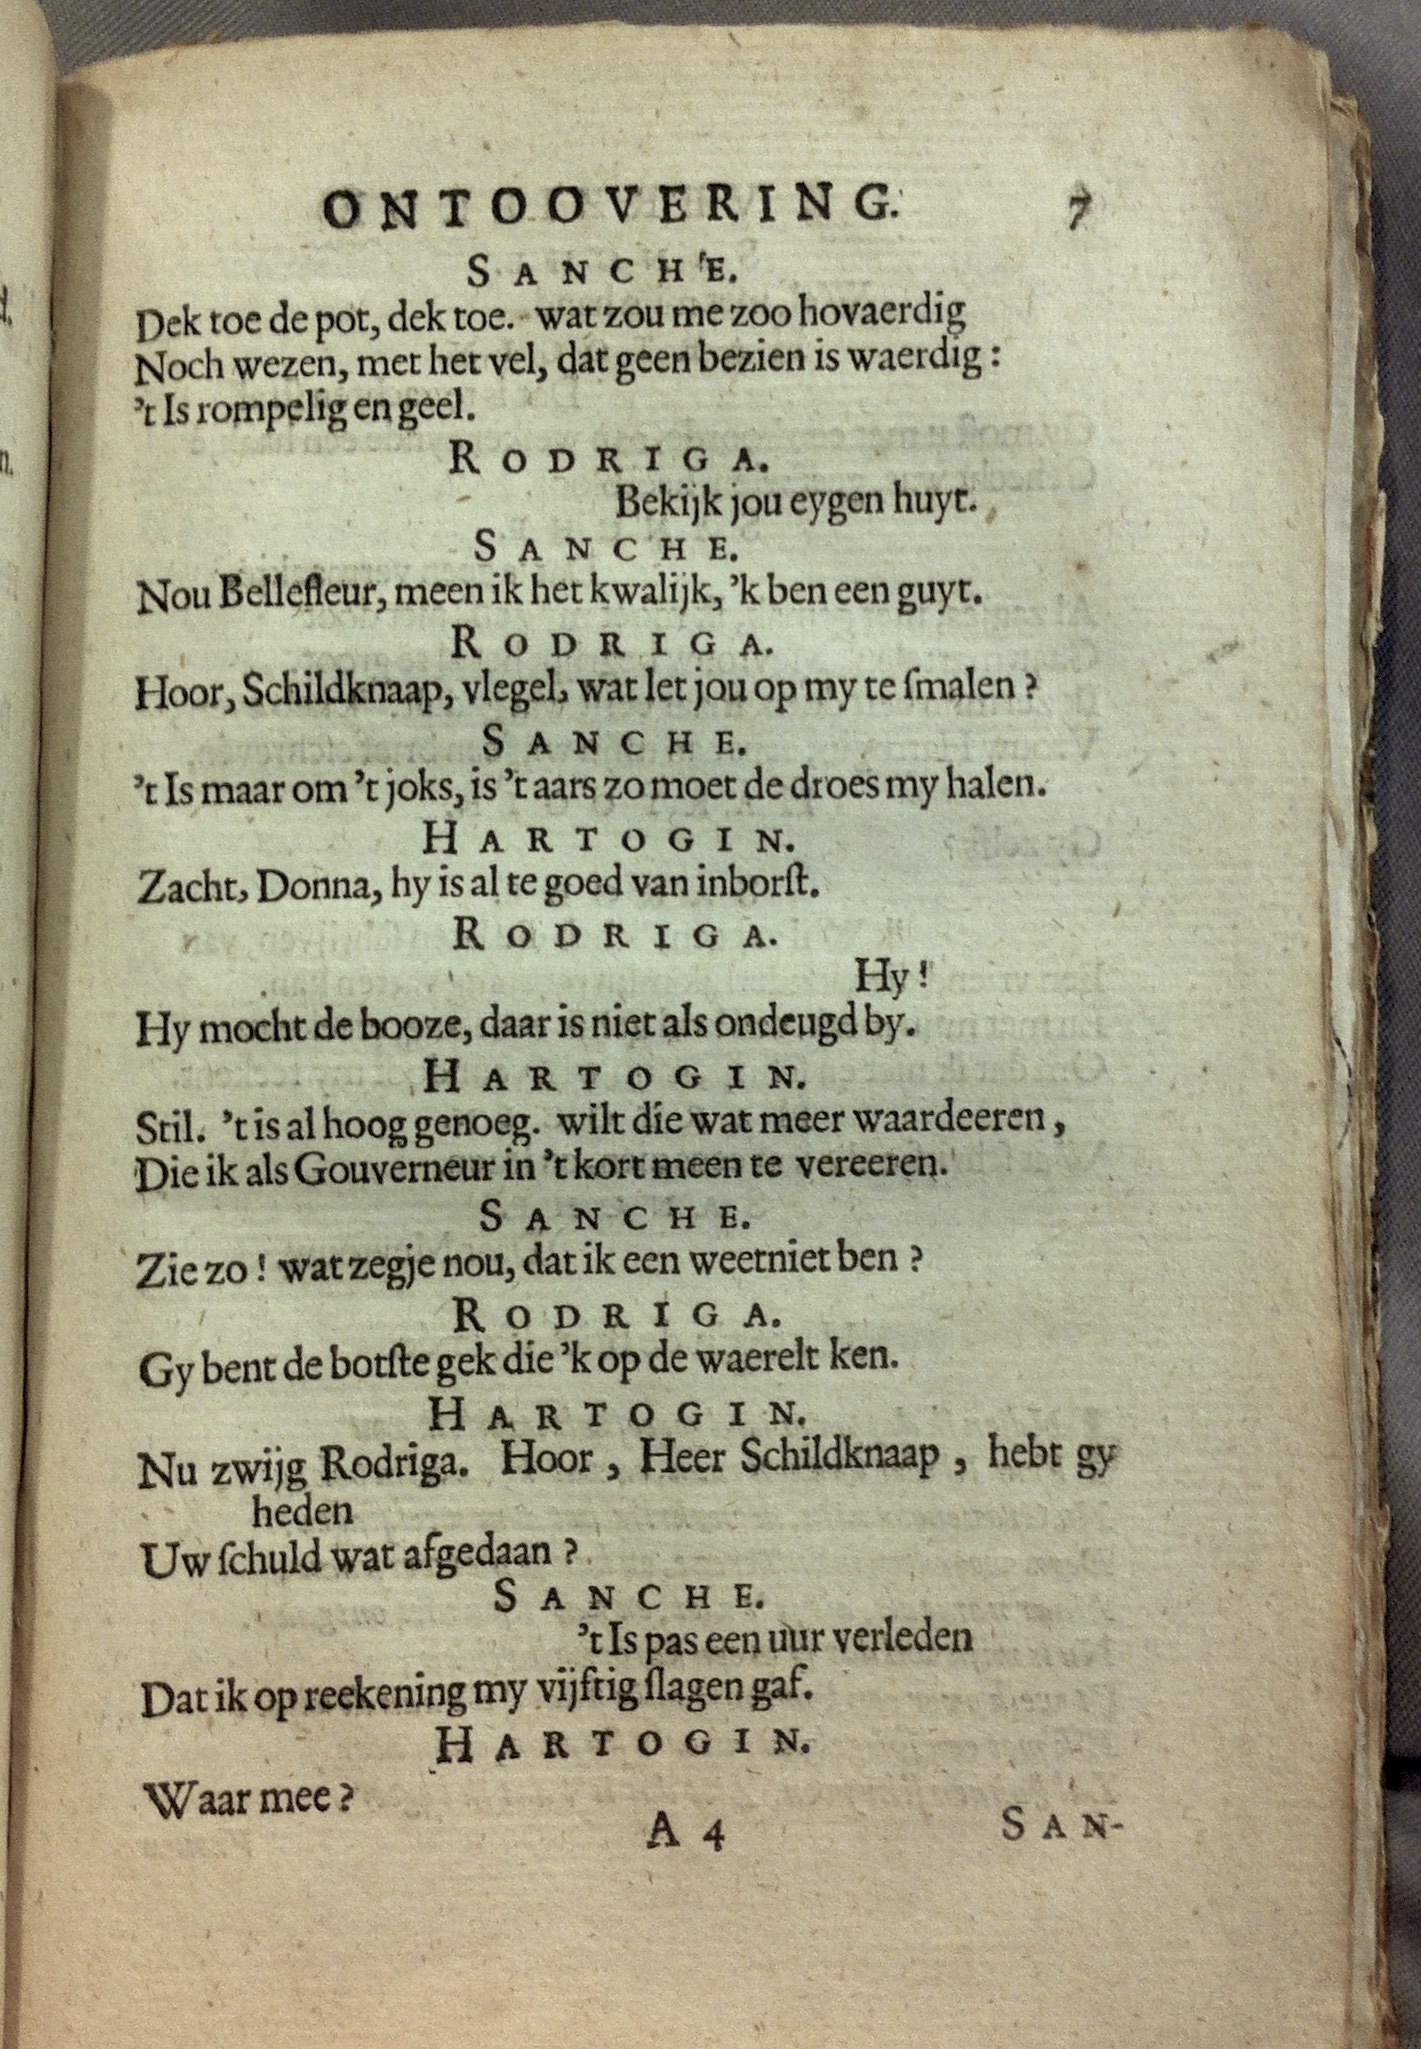 ONTOOVERING. 7
SANCHE.
Dek toe de pot, dek toe. wat zou me zoo hovaerdig
Noch wezen, met het vel, dat geen bezien is waerdig:
't Is rompelig en geel.
RODRIGA.
Bekijk jou eygen huyt.
SANCHE.
Nou Bellefleur, meen ik het kwalijk, 'k ben een guyt.
RODRIGA.
Hoor, Schildknaap, vlegel, wat let jou op my te ſmalen?
SANCHE.
't Is maar om 't joks, is 't aars zo moet de droes my halen.
HARTOGIN.
Zacht, Donna, hy is al te goed van inborſt.
RODRIGA.
Hy!
Hy mocht de booze, daar is niet als ondeugd by.
HARTOGIN.
Stil. 't is al hoog genoeg. wilt die wat meer waardeeren,
Die ik als Gouverneur in 't kort meen te vereeren.
SANCHE.
Zie zo! wat zegje nou, dat ik een weetniet ben?
RODRIGA.
Gy bent de botſte gek die 'k op de waerelt ken.
HARTOGIN.
Nu zwijg Rodriga. Hoor, Heer Schildknaap, hebt gy
heden
Uw ſchuld wat afgedaan?
SANCHE.
't Is pas een uur verleden
Dat ik op reekening my vijftig ſlagen gaf.
HARTOGIN.
Waar mee?
A 4 SAN-